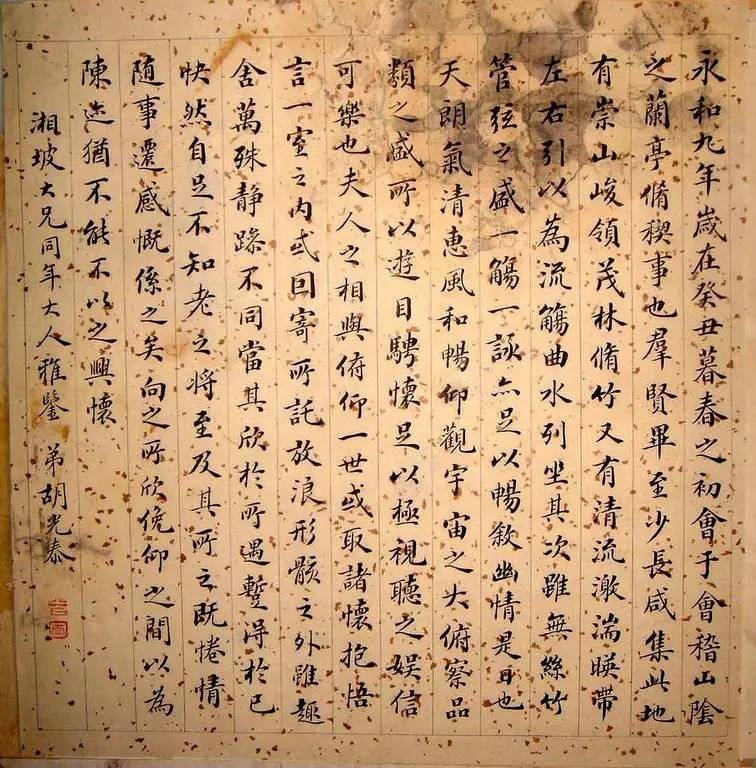 永和九年歲在癸丑暮春之初會于會稽山陰
之蘭亭脩稧事也羣賢畢至少長咸集此地
有崇山峻領茂林脩竹又有清流激湍暎帶
左右引以為流觴曲水列坐其次雖無絲竹
管弦之盛一觴一詠亦足以暢敘幽情是日也
天朗氣清惠風和暢仰觀宇宙之大俯察品
類之盛所以遊目騁懷足以極視聽之娛信
可樂也夫人之相與俯仰一世或取諸懷抱悟
言一室之內或因寄所託放浪形骸之外雖趣
舍萬殊靜躁不同當其欣於所遇蹔得於己
快然自足不知老之將至及其所之既惓情
隨事遷感慨係之矣向之所欣俛仰之間以為
陳迹猶不能不以之興懷
湘坡大兄同年大人雅鑒 弟胡光泰